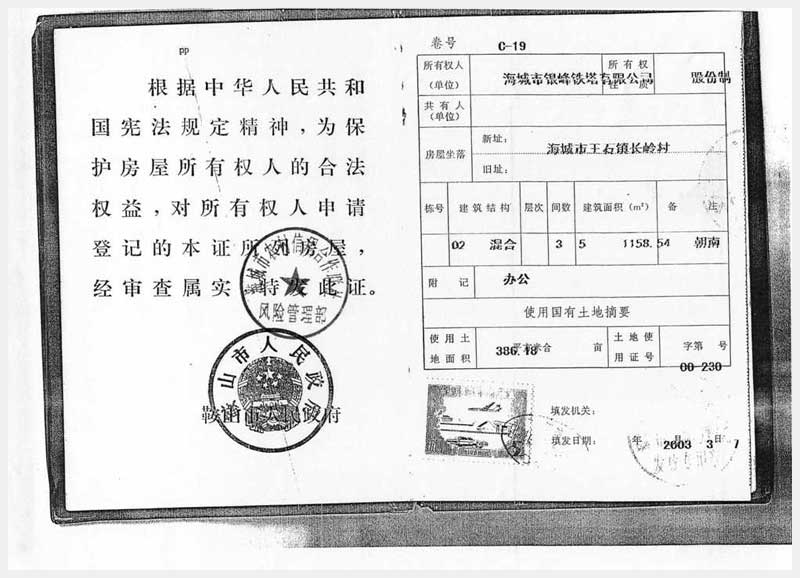 pp
根据中华人民共和
国宪法规定精神，为保
护房屋所有权人的合法
权益，对所有权人申请
登记的本证所列房屋，
经审查属实，特发此证。
风险管理部
鞍山市人民政府
卷号 C-19
所有权人
(单位)
海城市银峰铁塔有限公司
所有权
性质
股份制
共有人
(单位)
房屋坐落
新址：
海城市王石镇长岭村
旧址：
栋号 建筑结构 层次 间数 建筑面积（m²） 备注
02 混合 3 5 1158.54 朝南
附记 办公
使用国有土地摘要
使用土
地面积
386.18
平方米合 亩
土地使
用证号
字第 号
00-230
填发机关：
填发日期： 2003年 3月 7日